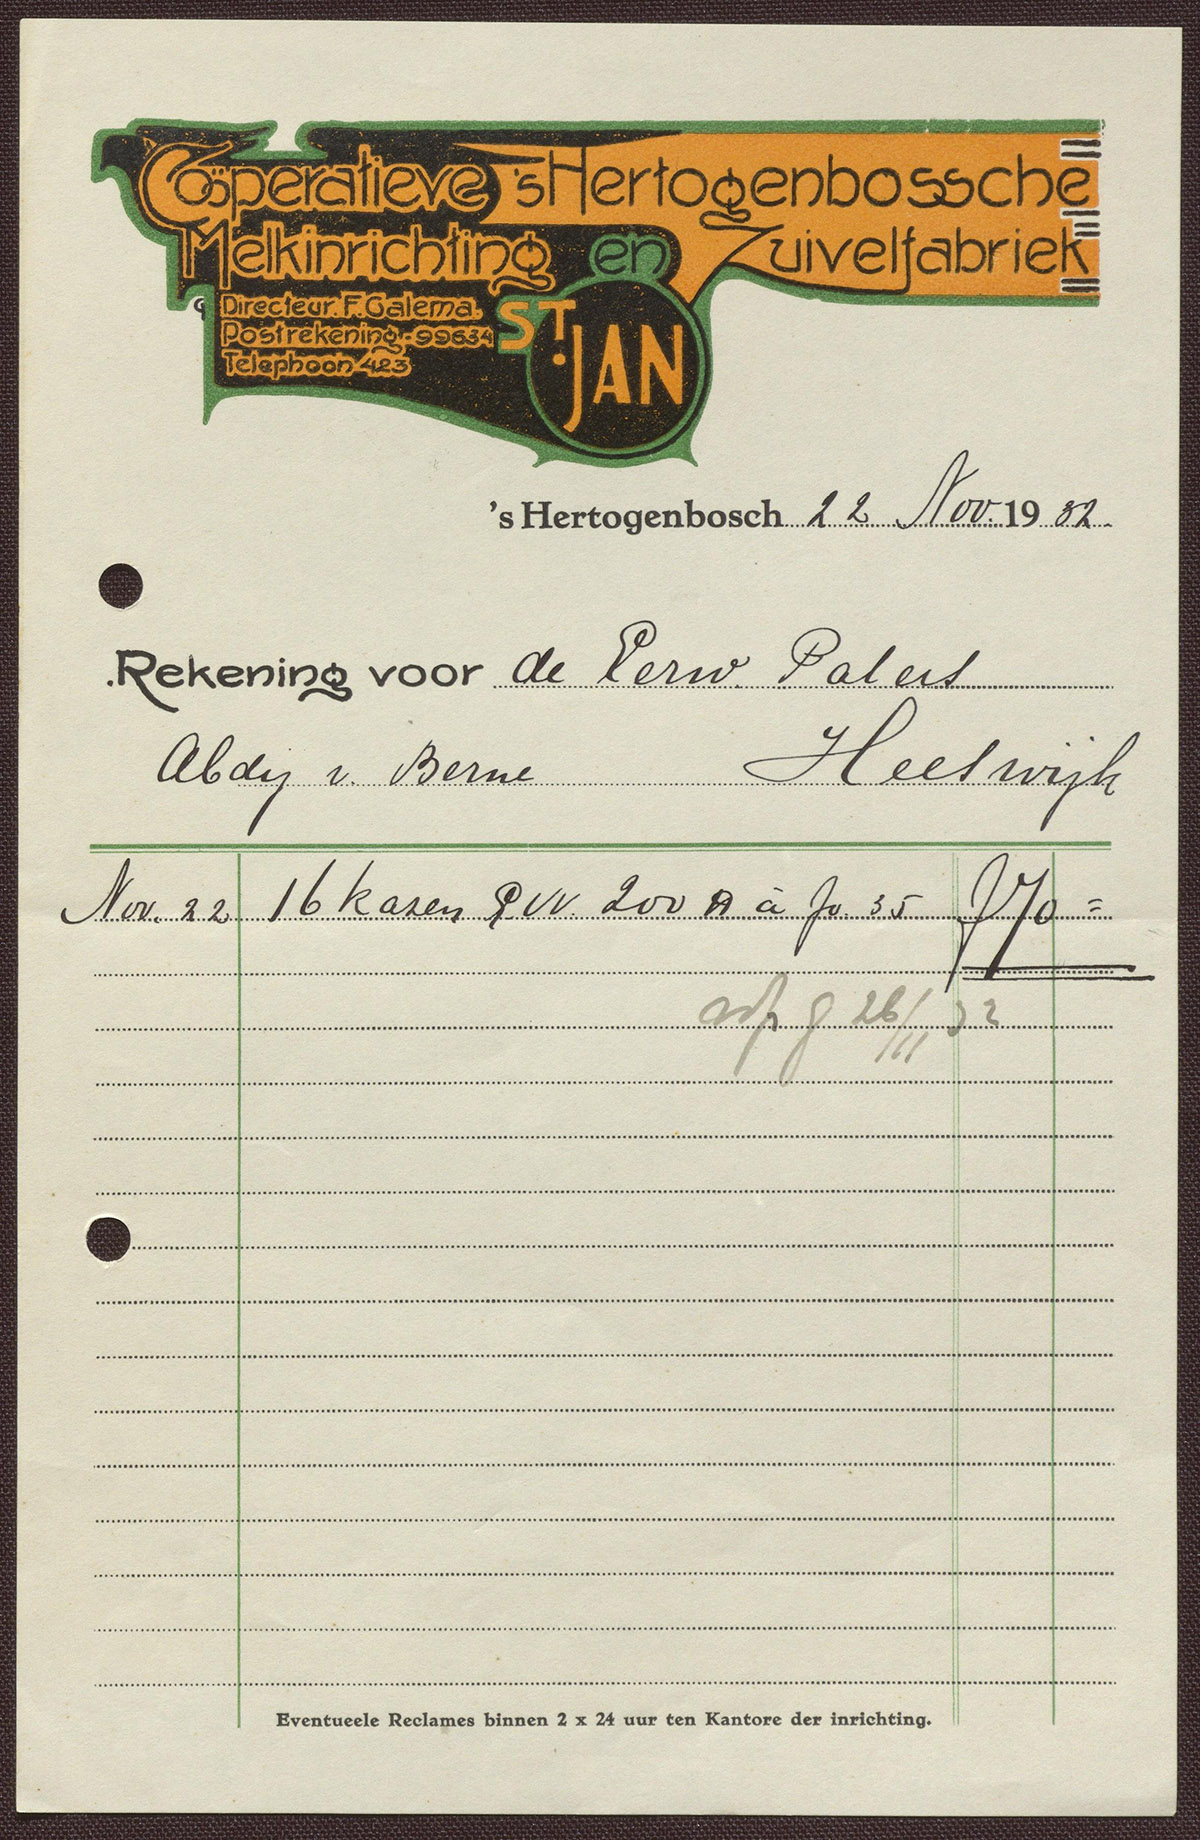 Coöperatieve 'sHertogenbossche
Melkinrichting en Zuivelfabriek
Directeur. F. Galema.
Postrekening - 99634
Telephoon 423
ST. JAN
's Hertogenbosch 22 Nov. 1932.
Rekening voor de Eerw. Paters
Abdij v. Berne Heeswijk
Nov. 22 16 kazen 200 à fo. 35 f 70 =
26/11 32
Eventueele Reclames binnen 2 x 24 uur ten Kantore der inrichting.